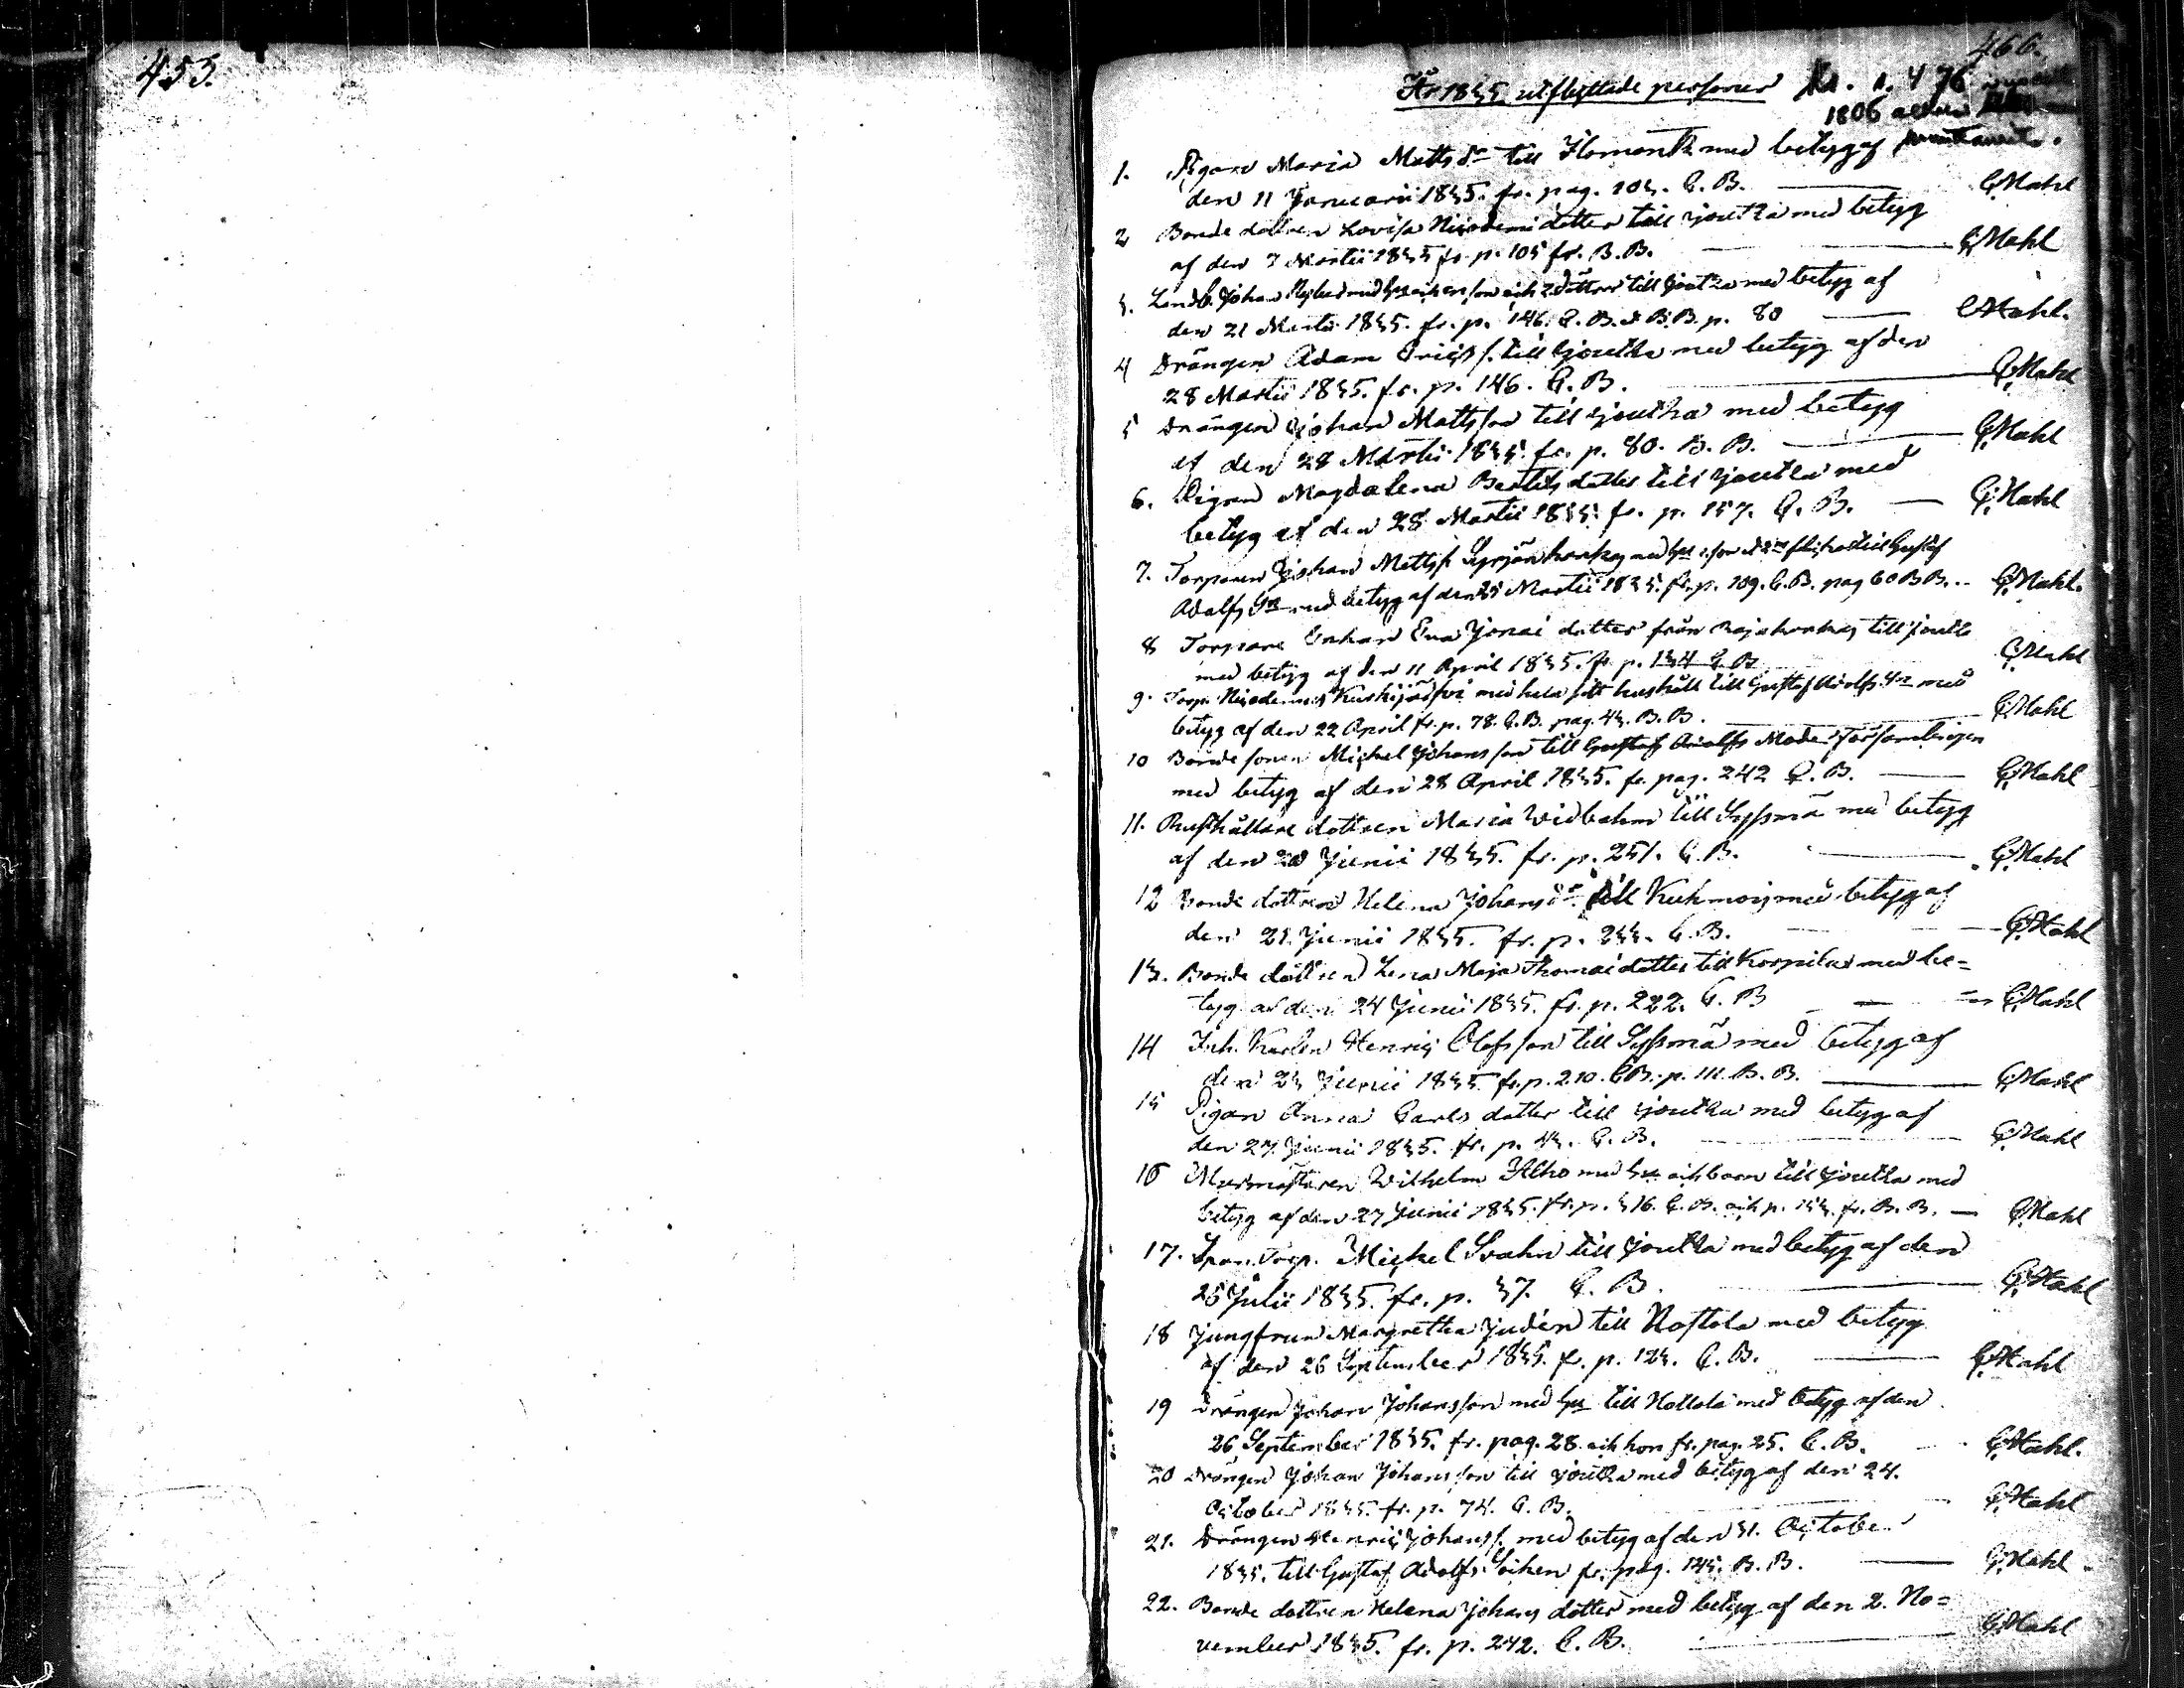 453.
466.
År 1835 utflyttade personer
1806
1. Pigan Maria Mattsdr till Ilomants med betyg af
den 11 Januarii 1835. fr. pag. 103. C. B. GMahl
2 Bonde dottren Lovisa Nicodemi dotter till Joutza med betyg
af den 7 Martii 1835 fr. p. 105 fr. B. B. GMahl
3. Landb. Johan med hu och en son och 2 döttrar till Joutza med betyg af
den 21 Martii 1835. fr. p. 146. C. B. & B. B. p. 80 GMahl.
4 Drängen Adam Ericss. till Joutza med betyg af den
28 Martii 1835. fr. p. 146. C. B. GMahl
5 Drängen Johan Mattsson till Joutza med betyg
af den 28 Martii 1835. fr. p. 80. B. B. GMahl
6. Pigan Magdalena Bertils dotter till Joutza med
betyg af den 28 Martii 1835. fr. p. 157. C. B. GMahl
7. Torparen Johan Mattss. med hu
Adolfs Sn med betyg af den 25 Martii 1835. fr. p. 109. C. B. pag 60 B B. GMahl.
8 Torpare Enkan Eva Jonai dotter från till Joutza
med betyg af den 11 April 1835. fr. p. 134 C B GMahl
9. Torp. Nicodemus med hela sitt hushåll till Gustaf Adolfs Sn med
betyg af den 22 April fr. p. 78. C. B. pag. 43. B. B. GMahl
10 Bonde sonen Michel Johansson till Gustaf Adolfs Moder Församlingen
med betyg af den 28 April 1835. fr. pag. 242 C. B. GMahl
11. Rusthållare dottren Maria Widbohm till Syssmä med betyg
af den 20 Junii 1835. fr. p. 251. C. B. GMahl
12 Bonde dottren Helena Johansdr till Kuhmois med betyg af
den 21. Junii 1835. fr. p. 233. C. B. GMahl
13. Bonde dottren Lena Maja Thomae dotter till Korpilax med be=
tyg af den 24 Junii 1835. fr. p. 222. C. B GMahl
14 Inh. Karlen Henric Olofsson till Syssmä med betyg af
den 23 Junii 1835 fr. p. 210. C B. p. 111. B. B. GMahl
15 Pigan Anna Carls dotter till Joutza med betyg af
den 27. Junii 1835. fr. p. 43. C. B. GMahl
16 Murmästaren Wilhelm Alho med hu och barn till Joutza med
betyg af den 27 Junii 1835. fr. p. 316. C. B. och p. 153. fr. B. B. GMahl
17. Torp. Michel Svahn till Joutza med betyg af den
25 Julii 1835. fr. p. 37. C. B. GMahl
18 Jungfrun Margretha Judin till Nastola med betyg
af den 26 September 1835. fr. p. 123. C. B. GMahl
19 Drängen Johan Johansson med hu till Hollola med betyg af den
26 September 1835. fr. pag. 28 och hon fr. pag. 25. C. B. GMahl.
20 Drängen Johan Johansson till Joutza med betyg af den 24.
October 1835. fr. p. 74. C. B. GMahl
21. Drängen Henric Johanss. med betyg af den 31. October
1835. till Gustaf Adolfs Socken fr. pag. 145. B. B. GMahl.
22. Bonde dottren Helena Johans dotter med betyg af den 2. No=
vember 1835. fr. p. 242. C. B. GMahl